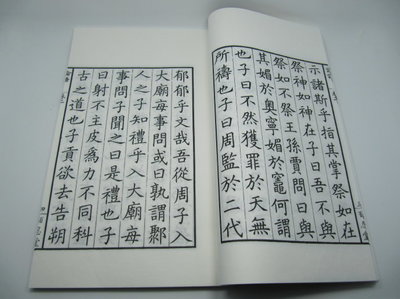 示諸斯乎指其掌祭如在
祭神如神在子曰吾不與
祭如不祭王孫賈問曰與
其媚於奧寧媚於竈何謂
也子曰不然獲罪於天無
所禱也子曰周監於二代
郁郁乎文哉吾從周子入
大廟每事問或曰孰謂鄹
人之子知禮乎入大廟每
事問子聞之曰是禮也子
曰射不主皮爲力不同科
古之道也子貢欲去告朔